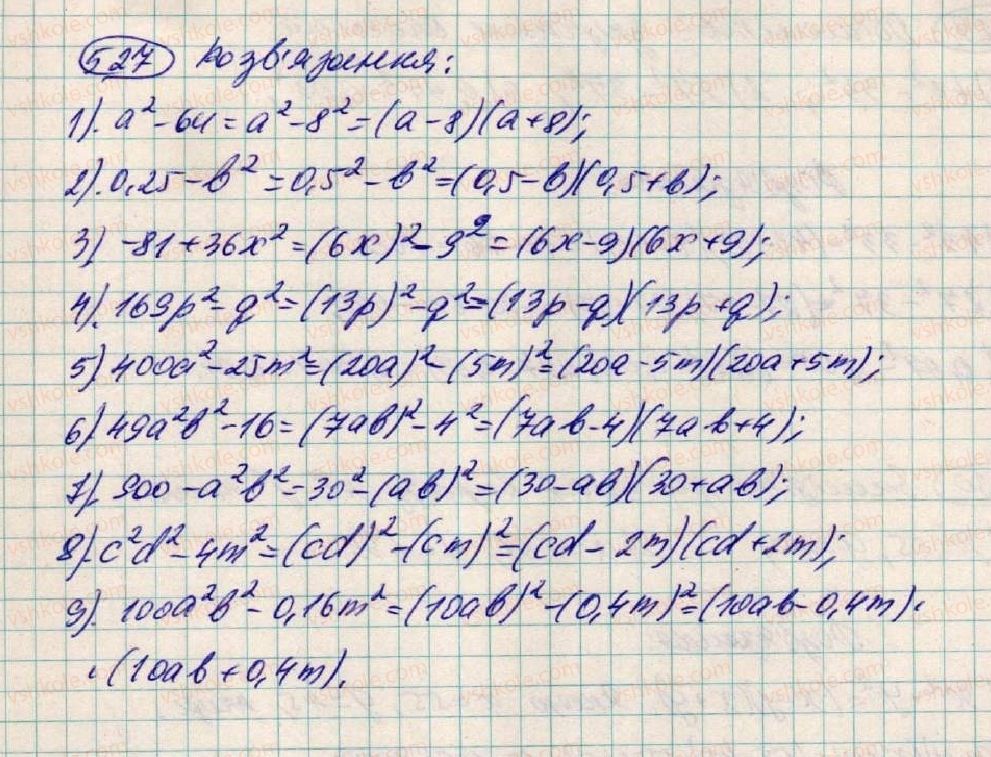 527 Розв'язання:
1). a² - 64 = a² - 8² = (a - 8)(a + 8);
2). 0,25 - b² = 0,5² - b² = (0,5 - b)(0,5 + b);
3) -81 + 36x² = (6x)² - 9² = (6x - 9)(6x + 9);
4). 169p² - q² = (13p)² - q² = (13p - q)(13p + q);
5) 400a² - 25m² = (20a)² - (5m)² = (20a - 5m)(20a + 5m);
6) 49a²b² - 16 = (7ab)² - 4² = (7ab - 4)(7ab + 4);
7). 900 - a²b² = 30² - (ab)² = (30 - ab)(30 + ab);
8). c²d² - 4m² = (cd)² - (cm)² = (cd - 2m)(cd + 2m);
9). 100a²b² - 0,16m² = (10ab)² - (0,4m)² = (10ab - 0,4m) ·
· (10ab + 0,4m).